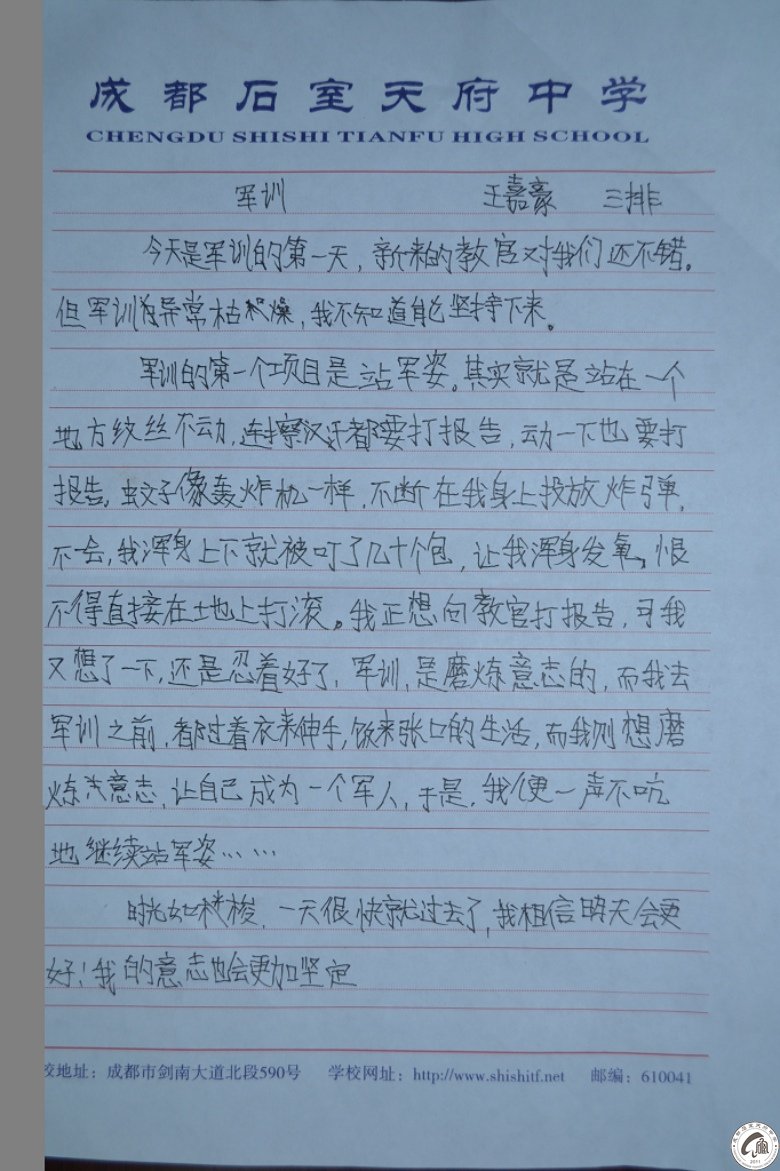 成都石室天府中学
CHENGDU SHISHI TIANFU HIGH SCHOOL
军训 王嘉豪 三排
今天是军训的第一天，新来的教官对我们还不错。
但军训为异常枯燥，我不知道能坚持下来。
军训的第一个项目是站军姿。其实就是站在一个
地方纹丝不动，连擦汗都要打报告，动一下也要打
报告。蚊子像轰炸机一样，不断在我身上投放炸弹，
不一会，我浑身上下就被叮了几十个包，让我浑身发氧。恨
不得直接在土地上打滚。我正想向教官打报告，可我
又想了一下，还是忍着好了，军训，是磨炼意志的，而我去
军训之前，都过着衣来伸手，饭来张口的生活，而我则想磨
炼意志，让自己成为一个军人，于是，我便一声不吭
地继续站军姿……
时光如梭，一天很快就过去了，我相信明天会更
好！我的意志也会更加坚定
校地址：成都市剑南大道北段590号 学校网址：http://www.shishitf.net 邮编：610041